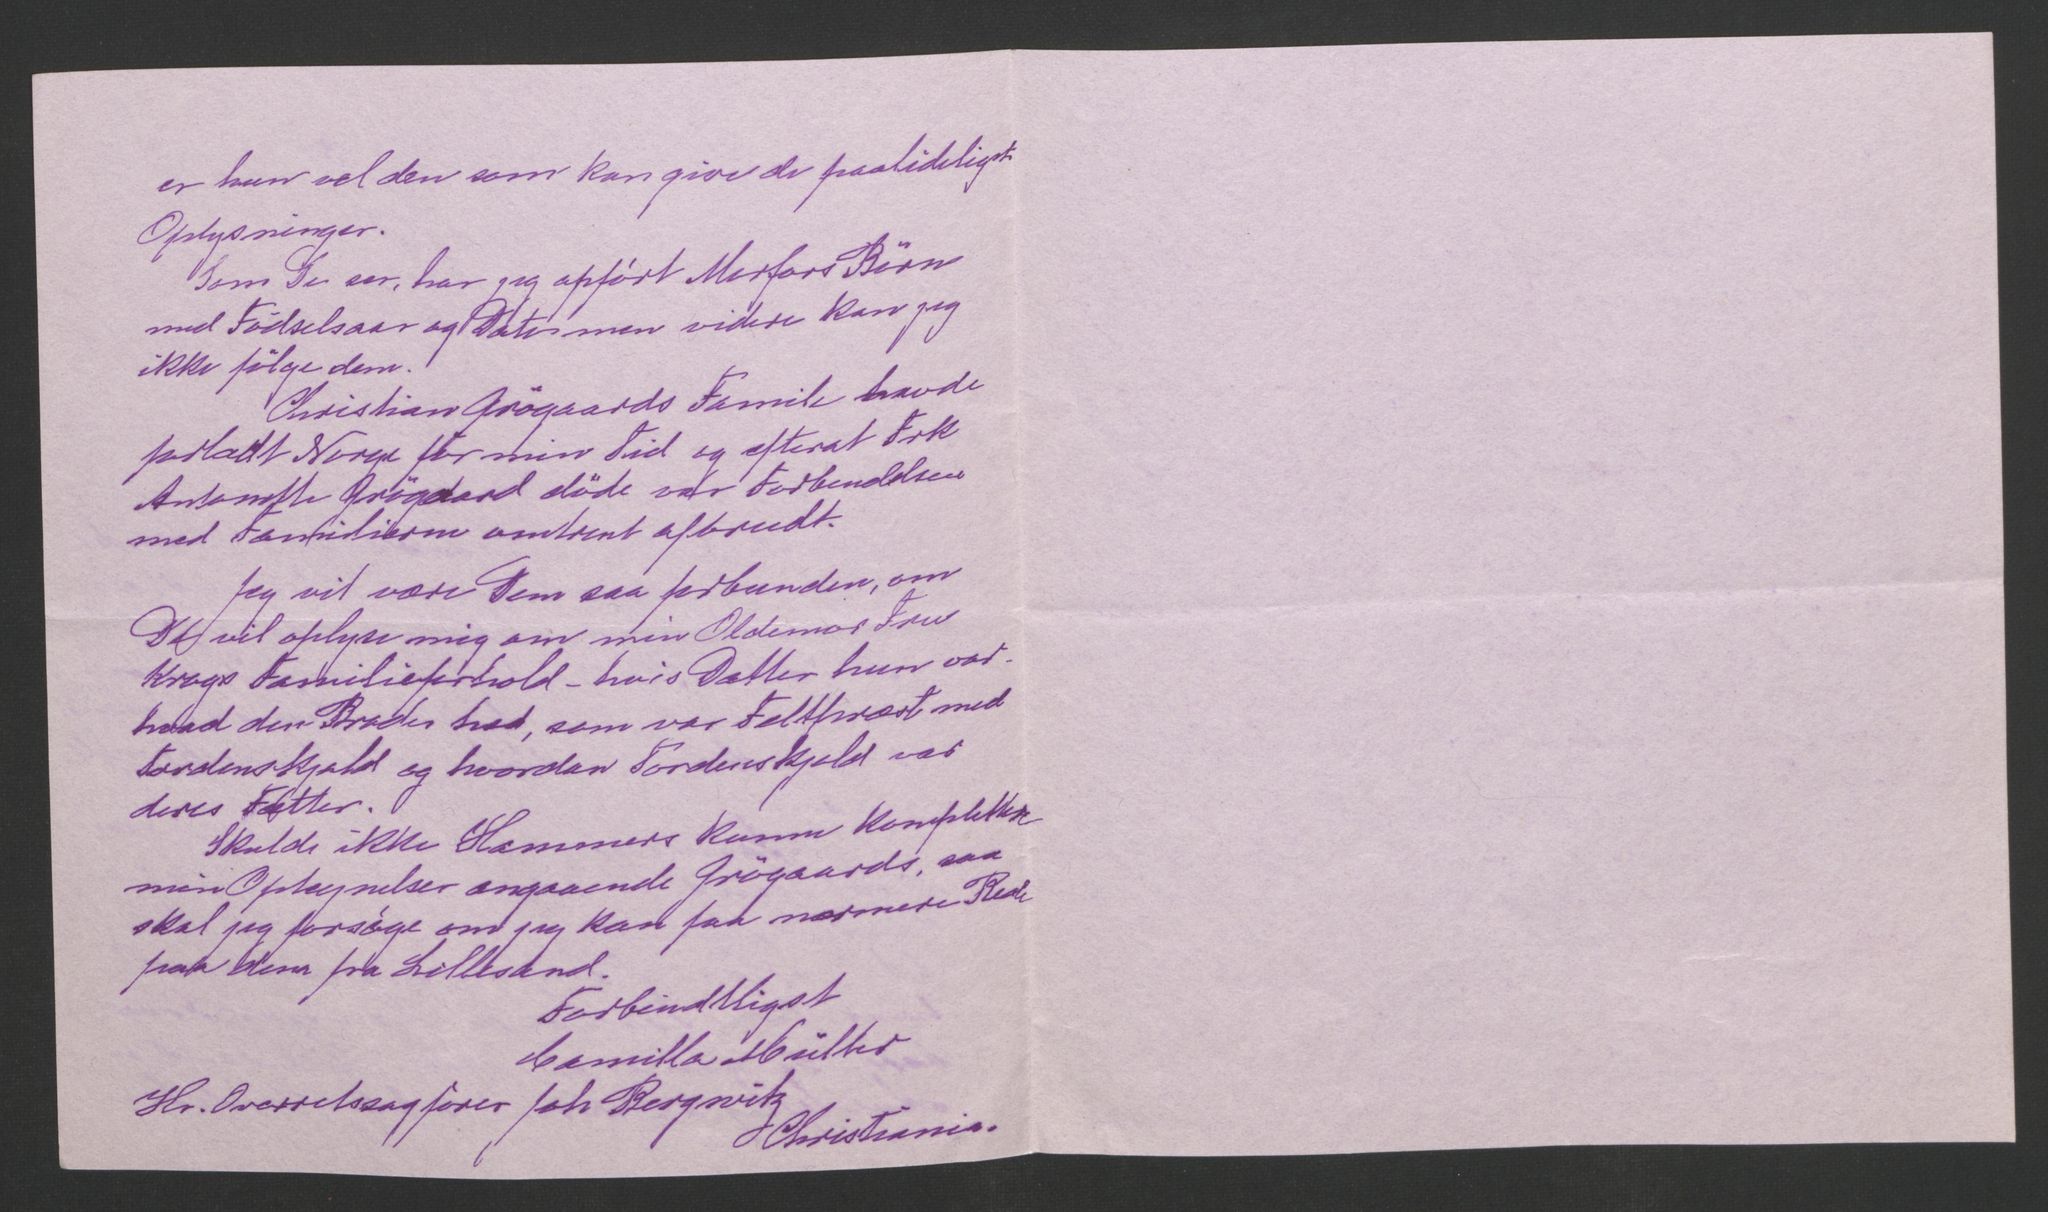 er hun vel den som kan give de paalideligste
Oplysninger.
Som De ser, har jeg opført Morfars Börn
med Födselsaar og Dato men videre kan jeg
ikke følge dem.
Christian Grögaards Familie havde
forladt Norge før min Tid og efterat Frk
Antonette Grögaard döde var Forbindelsen
med Familierne omtrent afbrudt.
Jeg vil være Dem saa forbunden, om
De vil oplyse mig om min Oldemor Fru
Krags Familieforhold – hvis Datter hun var –
hvad den Broder hed, som var Feltpræst med
Tordenskjold og hvordan Tordenskjold var
deres Fætter.
Skulde ikke Hammers kunne komplettere
mine Optegnelser angaaende Grögaards, saa
skal jeg forsøge om jeg kan faa nærmere Rede
paa dem fra Lillesand.
Forbindtligst
Camilla Müller
Hr. Overretssagfører Joh Bergwitz
Christiania.